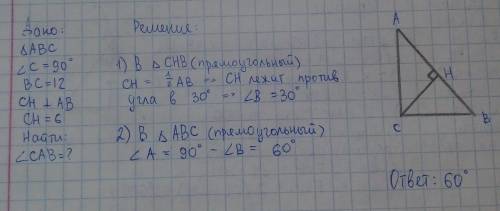 Дано:
△ABC
∠C=90°
BC=12
CH ⊥ AB
CH=6
Найти:
∠CAB=?
Решение:
1) В △CHB (прямоугольный)
CH = 1/2 AB => CH лежит против
угла в 30° => ∠B=30°
2) В △ABC (прямоугольный)
∠A = 90° - ∠B = 60°
A
H
C
B
Ответ: 60°